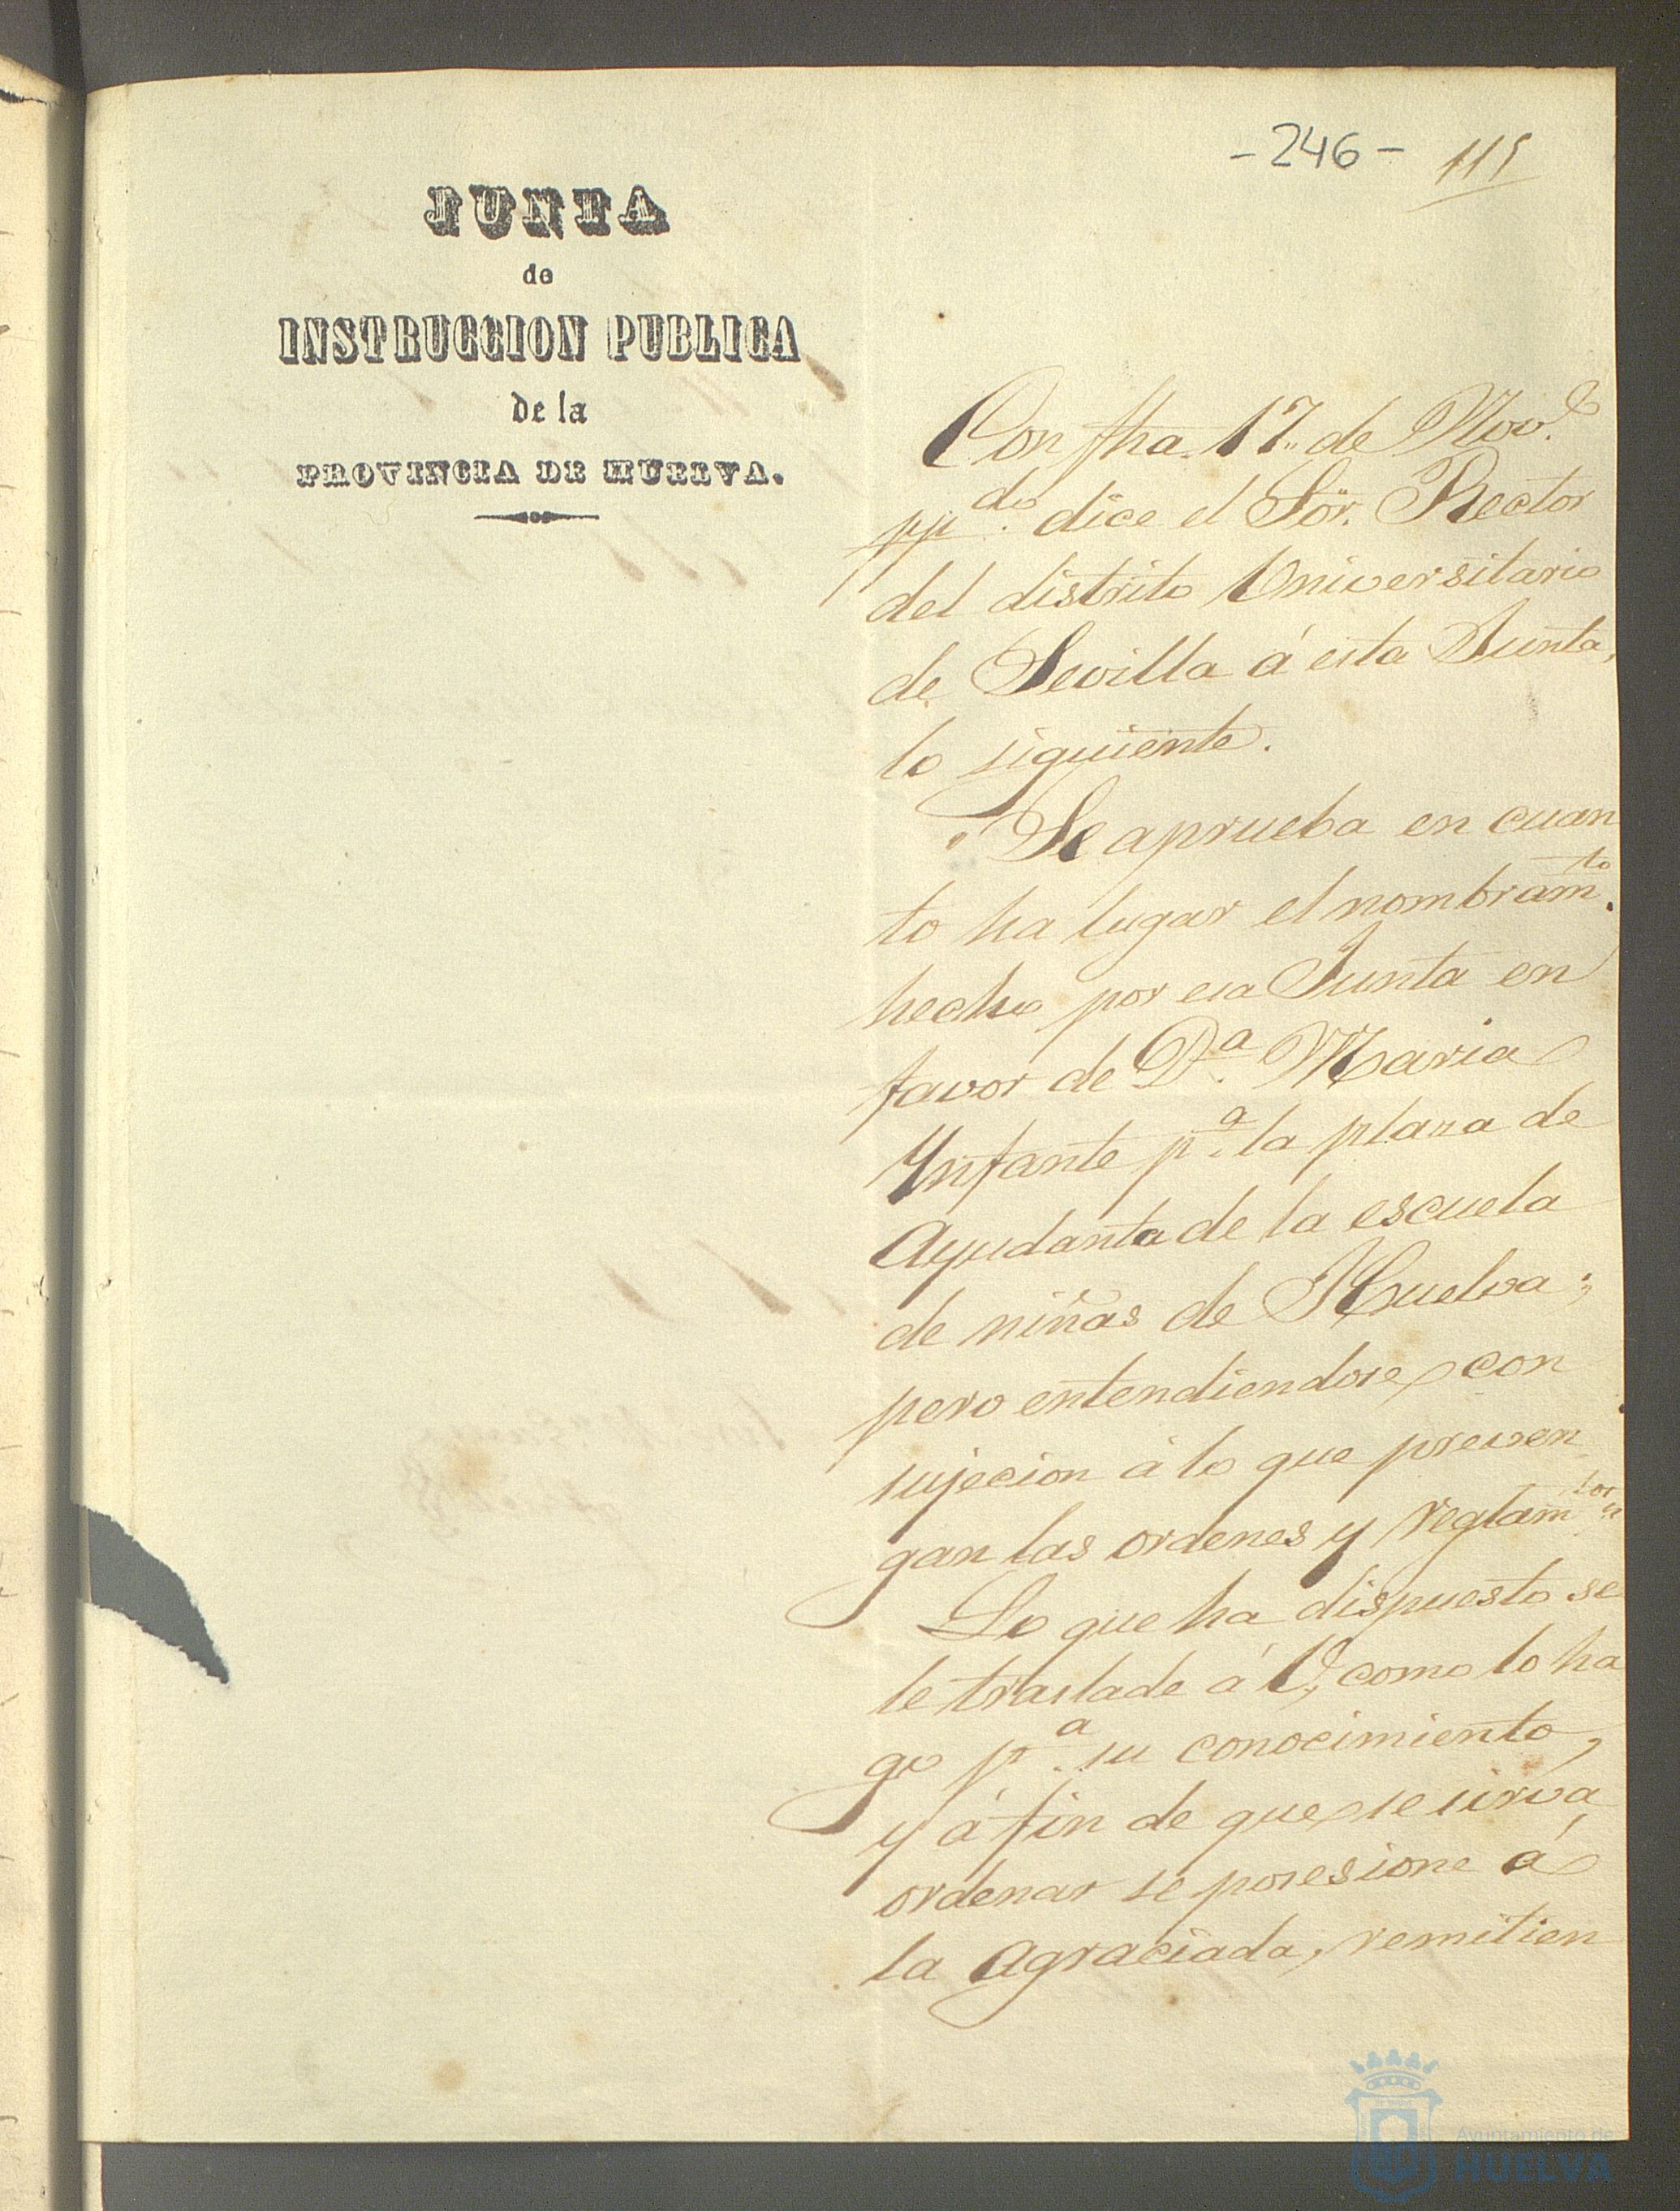 - 246 -
115
JUNTA
de
INSTRUCCION PUBLICA
de la
PROVINCIA DE HUELVA.
Con fha. 17 de Nov.e
pp.do dice el Sör. Rector
del distrito Universitario
de Sevilla á esta Junta,
lo siguiente.
"Se aprueba en cuan
to ha lugar el nombram.to
hecho por esa Junta en
favor de D.a Maria
Ynfante p.a la plaza de
Ayudanta de la escuela
de niñas de Huelva;
pero entendiendose con
sujecion á lo que preven
gan las ordenes y reglam.tos"
Lo que ha dispuesto se
le traslade á V, como lo ha
go p.a su conocimiento,
y á fin de que se sirva
ordenar se posesione á
la agraciada, remitien
Ayuntamiento de
HUELVA